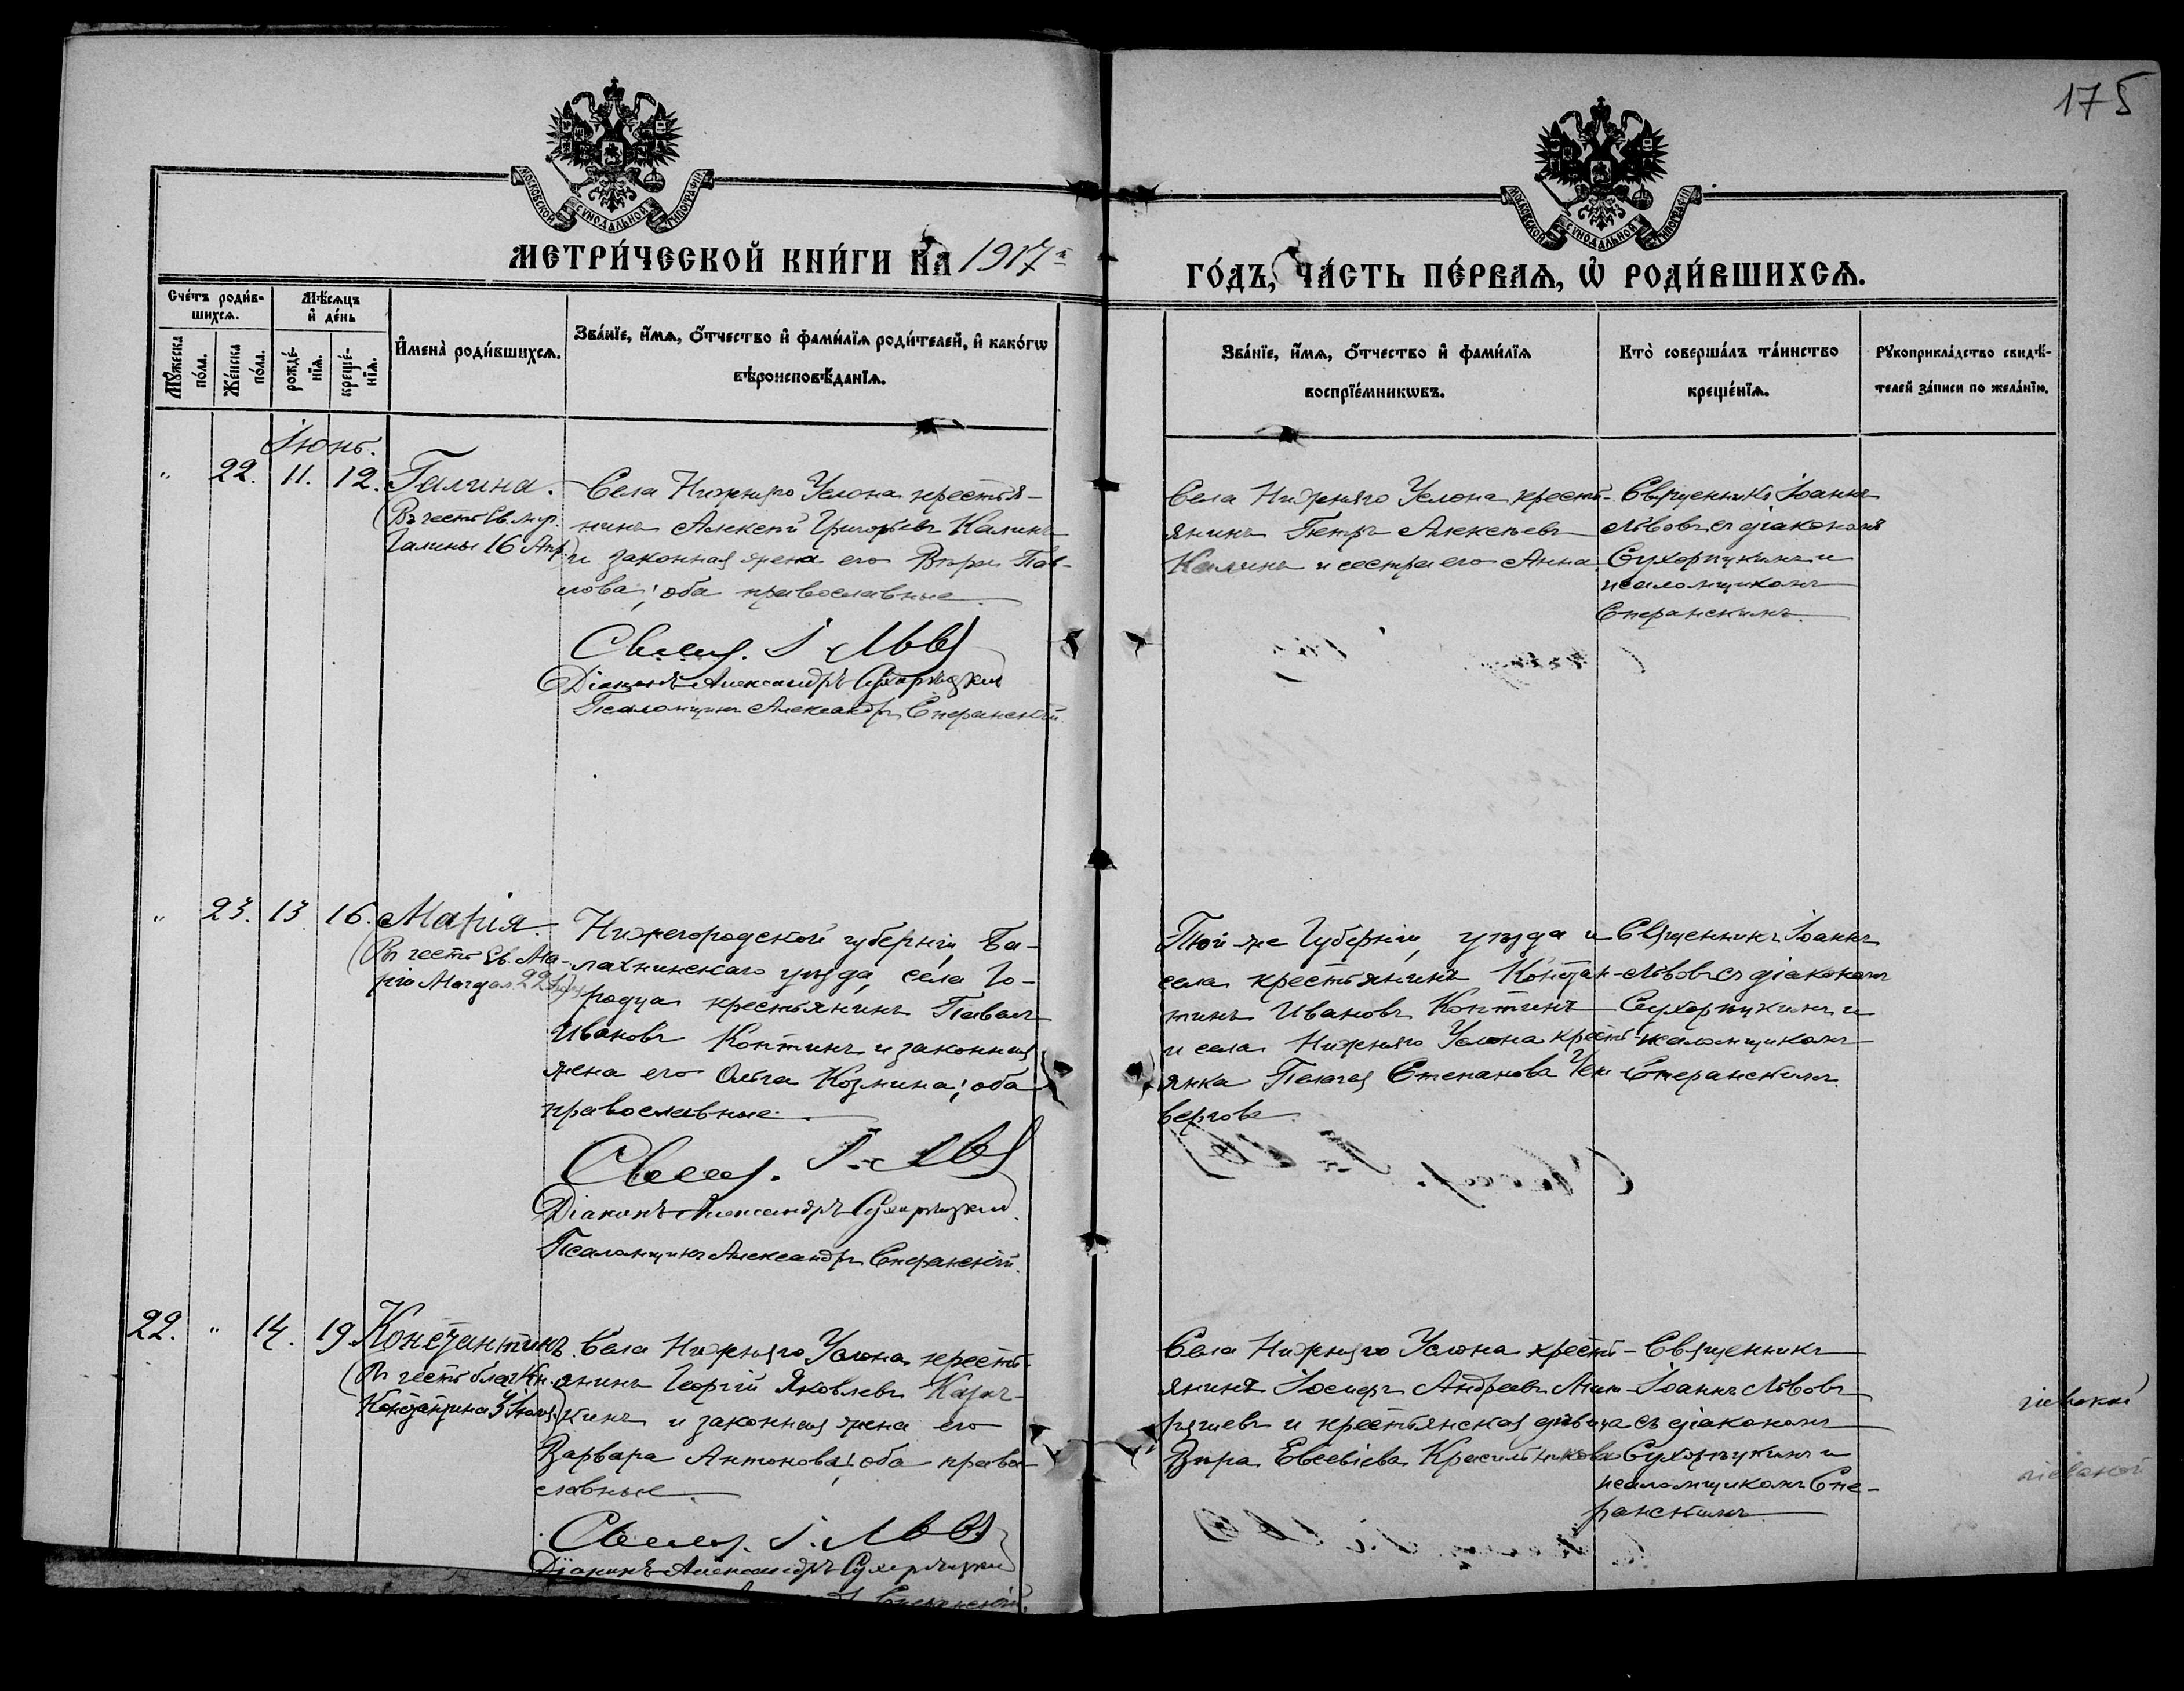 175
МОСКОВСКОЙ СУНОДАЛЬНОЙ ТИПОГРАФІИ
МОСКОВСКОЙ СУНОДАЛЬНОЙ ТИПОГРАФІИ
МЕТРИ́ЧЕСКОЙ КНИ́ГИ НА 1917 й
ГО́ДЪ, ЧА́СТЬ ПЕ́РВАЯ, Ѡ҆ РОДИ́ВШИХСѦ.
Сче́тъ роди́в-
шихсѧ.
Мѣ́сѧцъ
и҆ де́нь
Мꙋ́жеска по́ла.
Же́нска по́ла.
рожде́-
нїѧ.
креще́-
нїѧ.
И҆мена̀ роди́вшихсѧ.
Зва́нїе, и҆́мѧ, ѻ҆́тчество и҆ фами́лїѧ роди́телей, и҆ како́гѡ
вѣроисповѣ́данїѧ.
Зва́нїе, и҆́мѧ, ѻ҆́тчество и҆ фами́лїѧ
воспрїе́мникѡвъ.
Кто̀ соверша́лъ та́инство
креще́нїѧ.
Рꙋкоприкла́дство свидѣ́-
телей за́писи по жела́нїю.
Іюнь.
" 22. 11. 12. Галина.
(Въ честь Св. мч.
Галины 16 Апр.)
Села Нижняго Услона крестья-
нинъ Алексѣй Григорьевъ Калинъ
и законная жена его Вѣра Пав-
лова; оба православные.
Свящ. І. Львов
Діаконъ Александръ Сухорукин
Псаломщикъ Александръ Сперанскій.
Села Нижняго Услона кресть-
янинъ Петръ Алексѣевъ
Калинъ и сестра его Анна.
Священникъ Іоаннъ
Львовъ съ діакономъ
Сухорукинымъ и
псаломщикомъ
Сперанскимъ.
" 23. 13 16. Марія.
(Въ честь Св. Ма-
ріи Магдал 22 Іюля)
Нижегородской губерніи, Ба-
лахнинскаго уѣзда, села Го-
родца крестьянинъ Павелъ
Ивановъ Коптинъ и законная
жена его Ольга Козмина; оба
православные.
Свящ. І. Львов
Діаконъ Александръ Сухорукин
Псаломщикъ Александръ Сперанскій.
Той-же Губерніи, уѣзда и
села крестьянинъ Констан-
тинъ Ивановъ Коптинъ
и села Нижняго Услона кресть-
янка Пелагея Степанова
Священникъ Іоаннъ
Львовъ съ діакономъ
Сухорукинымъ и
псаломщикомъ
Сперанскимъ.
22. " 14. 19 Константинъ.
(Въ честь благ. Кн.
Константина 3 Іюля)
Села Нижняго Услона кресть-
янинъ Георгій Яковлевъ
и законная жена его
Варвара Антонова; оба право-
славные.
Свящ. І. Львов
Діаконъ Александръ Сухорукин
Сперанскій.
Села Нижняго Услона кресть-
янинъ Іосифъ Андреевъ
и крестьянская дѣвица
Вѣра Евсевіева Красильникова
Священникъ
Іоаннъ Львовъ
съ діакономъ
Сухорукинымъ и
псаломщикомъ Спе-
ранскимъ